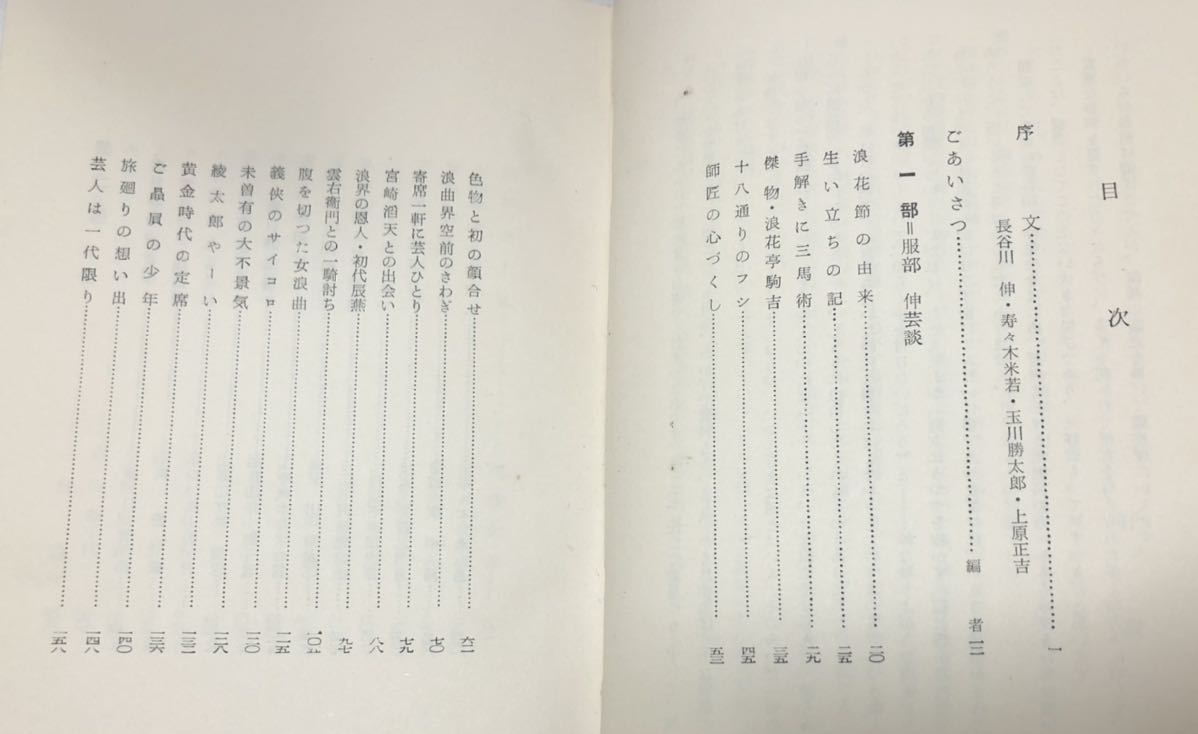 目次
序文…………一
長谷川 伸・寿々木米若・玉川勝太郎・上原正吉
ごあいさつ…………編者 一二
第一部＝服部 伸芸談
浪花節の由来…………二〇
生い立ちの記…………二五
手解きに三馬術…………二九
傑物・浪花亭駒吉…………三五
十八通りのフシ…………四五
師匠の心づくし…………五三
色物と初の顔合せ…………六二
浪曲界空前のさわぎ…………七〇
寄席一軒に芸人ひとり…………七九
宮崎滔天との出会い…………八八
浪界の恩人・初代辰燕…………九七
雲右衛門との一騎討ち…………一〇五
腹を切つた女浪曲…………一一五
義侠のサイコロ…………一二〇
未曽有の大不景気…………一二八
綾太郎やーい…………一三二
黄金時代の定席…………一三六
ご贔屓の少年…………一四〇
旅廻りの想い出…………一四八
芸人は一代限り…………一五八